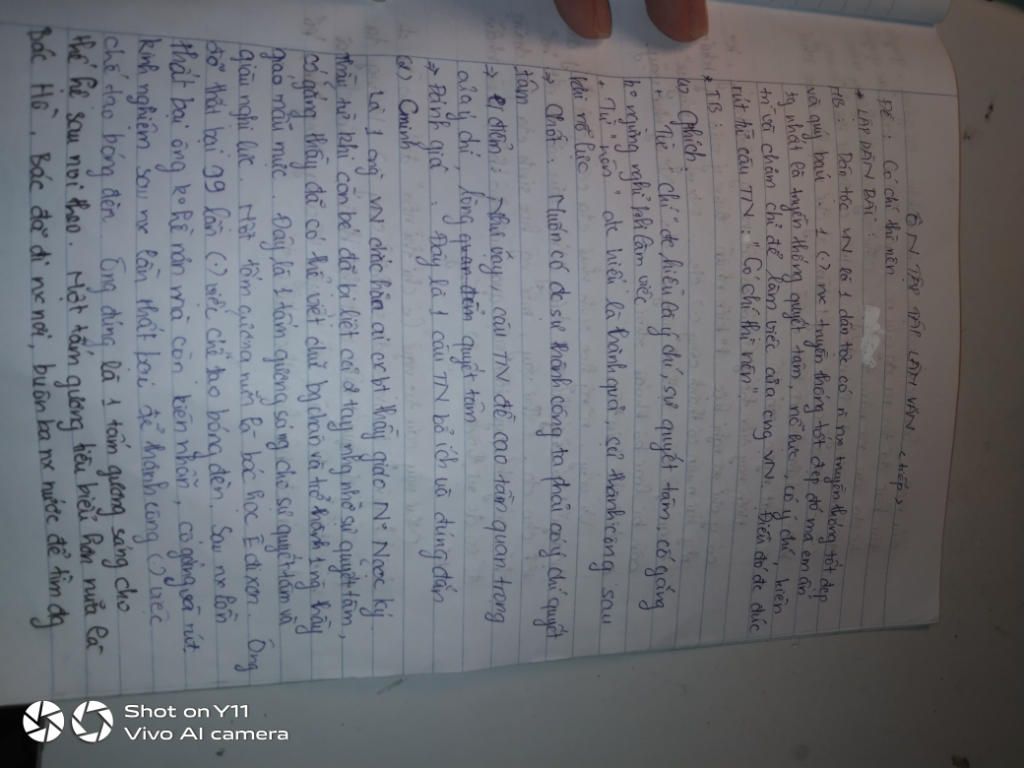 ÔN TẬP TẬP LÀM VĂN < tiếp >
Đề: Có chí thì nên
* LẬP DÀN BÀI:
MB: Dân tộc VN là 1 dân tộc có n` truyền thống tốt đẹp
và quý báu. 1 (.) truyền thống tốt đẹp đó mà em ấn
tg nhất là truyền thống quyết tâm, nỗ lực, có ý chí, kiên
trì và chăm chỉ để làm việc của cng VN. Điều đó đc đúc
rút từ câu TN: "Có chí thì nên"
* TB:
a) Gthích
- Từ "chí" đc hiểu là ý chí, sự quyết tâm, cố gắng
ko ngừng nghỉ khi làm việc
- Từ "nên" đc hiểu là thành quả, sự thành công sau
khi nỗ lực
→ Chốt: Muốn có đc sự thành công ta phải có ý chí quyết
tâm
→ Như vậy câu TN đề cao tầm quan trọng
của ý chí, lòng quyết tâm
→ Đánh giá: Đây là 1 câu TN bổ ích và đúng đắn
b) Cminh
Là 1 ng VN chắc hẳn ai cx bt thầy giáo Ng Ngọc Ký.
Thầy từ khi còn bé đã bị liệt cả 2 tay nhg nhờ sự quyết tâm,
cố gắng thầy đã có thể viết chữ bg chân và trở thành 1 ng thầy
giáo mẫu mực. Đây là 1 tấm gương sáng cho sự quyết tâm và
giàu nghị lực. Một tấm gương nữa là bác học Ê đi xơn. Ông
đã thất bại 99 lần (.) việc chế tạo bóng đèn. Sau lần
thất bại ông ko hề nản mà còn kiên nhẫn, cố gắng và rút
kinh nghiệm sau lần thất bại để thành công (.) việc
chế tạo bóng đèn. Ông đúng là 1 tấm gương sáng cho
thế hệ sau noi theo. Một tấm gương tiêu biểu hơn nữa là
Bác Hồ, Bác đã đi nơi, nước để tìm đg
Shot on Y11
Vivo AI camera